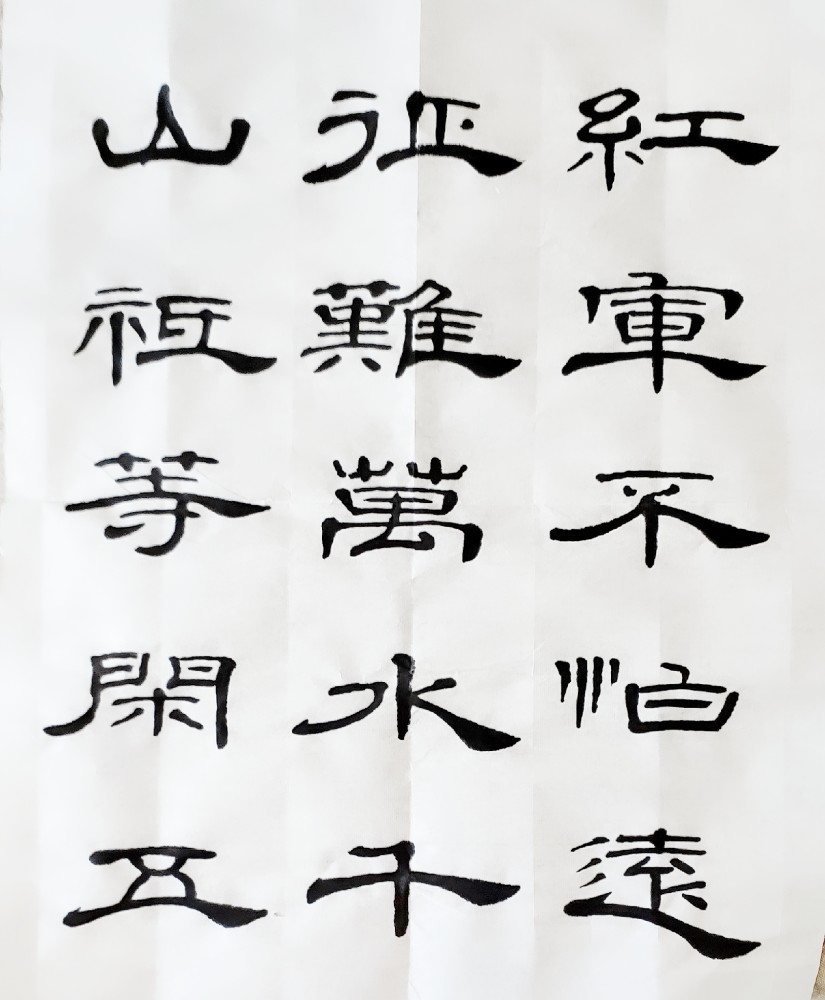 紅軍不怕遠
征難萬水千
山祗等閑五